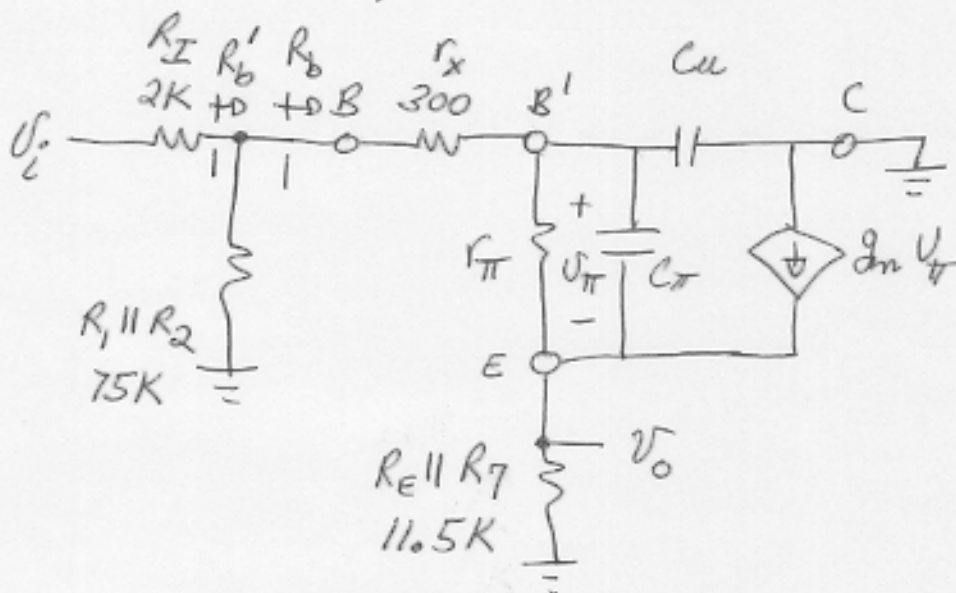 R_I R_b' R_b r_x C_u
2K B 300 B' C
v_i
+
r_π v_π C_π g_m v_π
−
R_1 || R_2 E
75K
v_o
R_E || R_7
11.5K